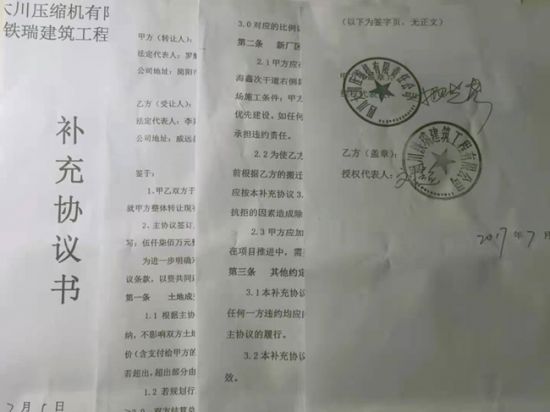 大川压缩机有限
铁瑞建筑工程
补充协议书
甲方（转让人）：
法定代表人：罗
公司地址：简阳市
乙方（受让人）：
法定代表人：李
公司地址：威远县
鉴于：
1、甲乙双方于
就甲方整体转让现
2、主协议签订
写：伍仟柒佰万元整
为进一步明确
议条款，以资共同
第一条 土地成
1.1 根据主协
纳，不影响双方土
价（含支付给甲方的
若超出，超出部分由
1.2 若规划行
3.0 对应的比例
第二条 新厂区
2.1 甲方应在
海鑫次干道右侧
场施工条件；甲方
优先建设，如任何
承担违约责任。
2.2 为使乙方
前根据乙方的搬迁
应按本补充协议 3.
抗拒的因素造成除
2.3 甲方应加
在项目推进中，需
第三条 其他约定
3.1 本补充协议
任何一方违约均应
主协议的履行。
3.2 本补充协议
效。
（以下为签字页，无正文）
乙方（盖章）：
授权代表人：
2017年7月